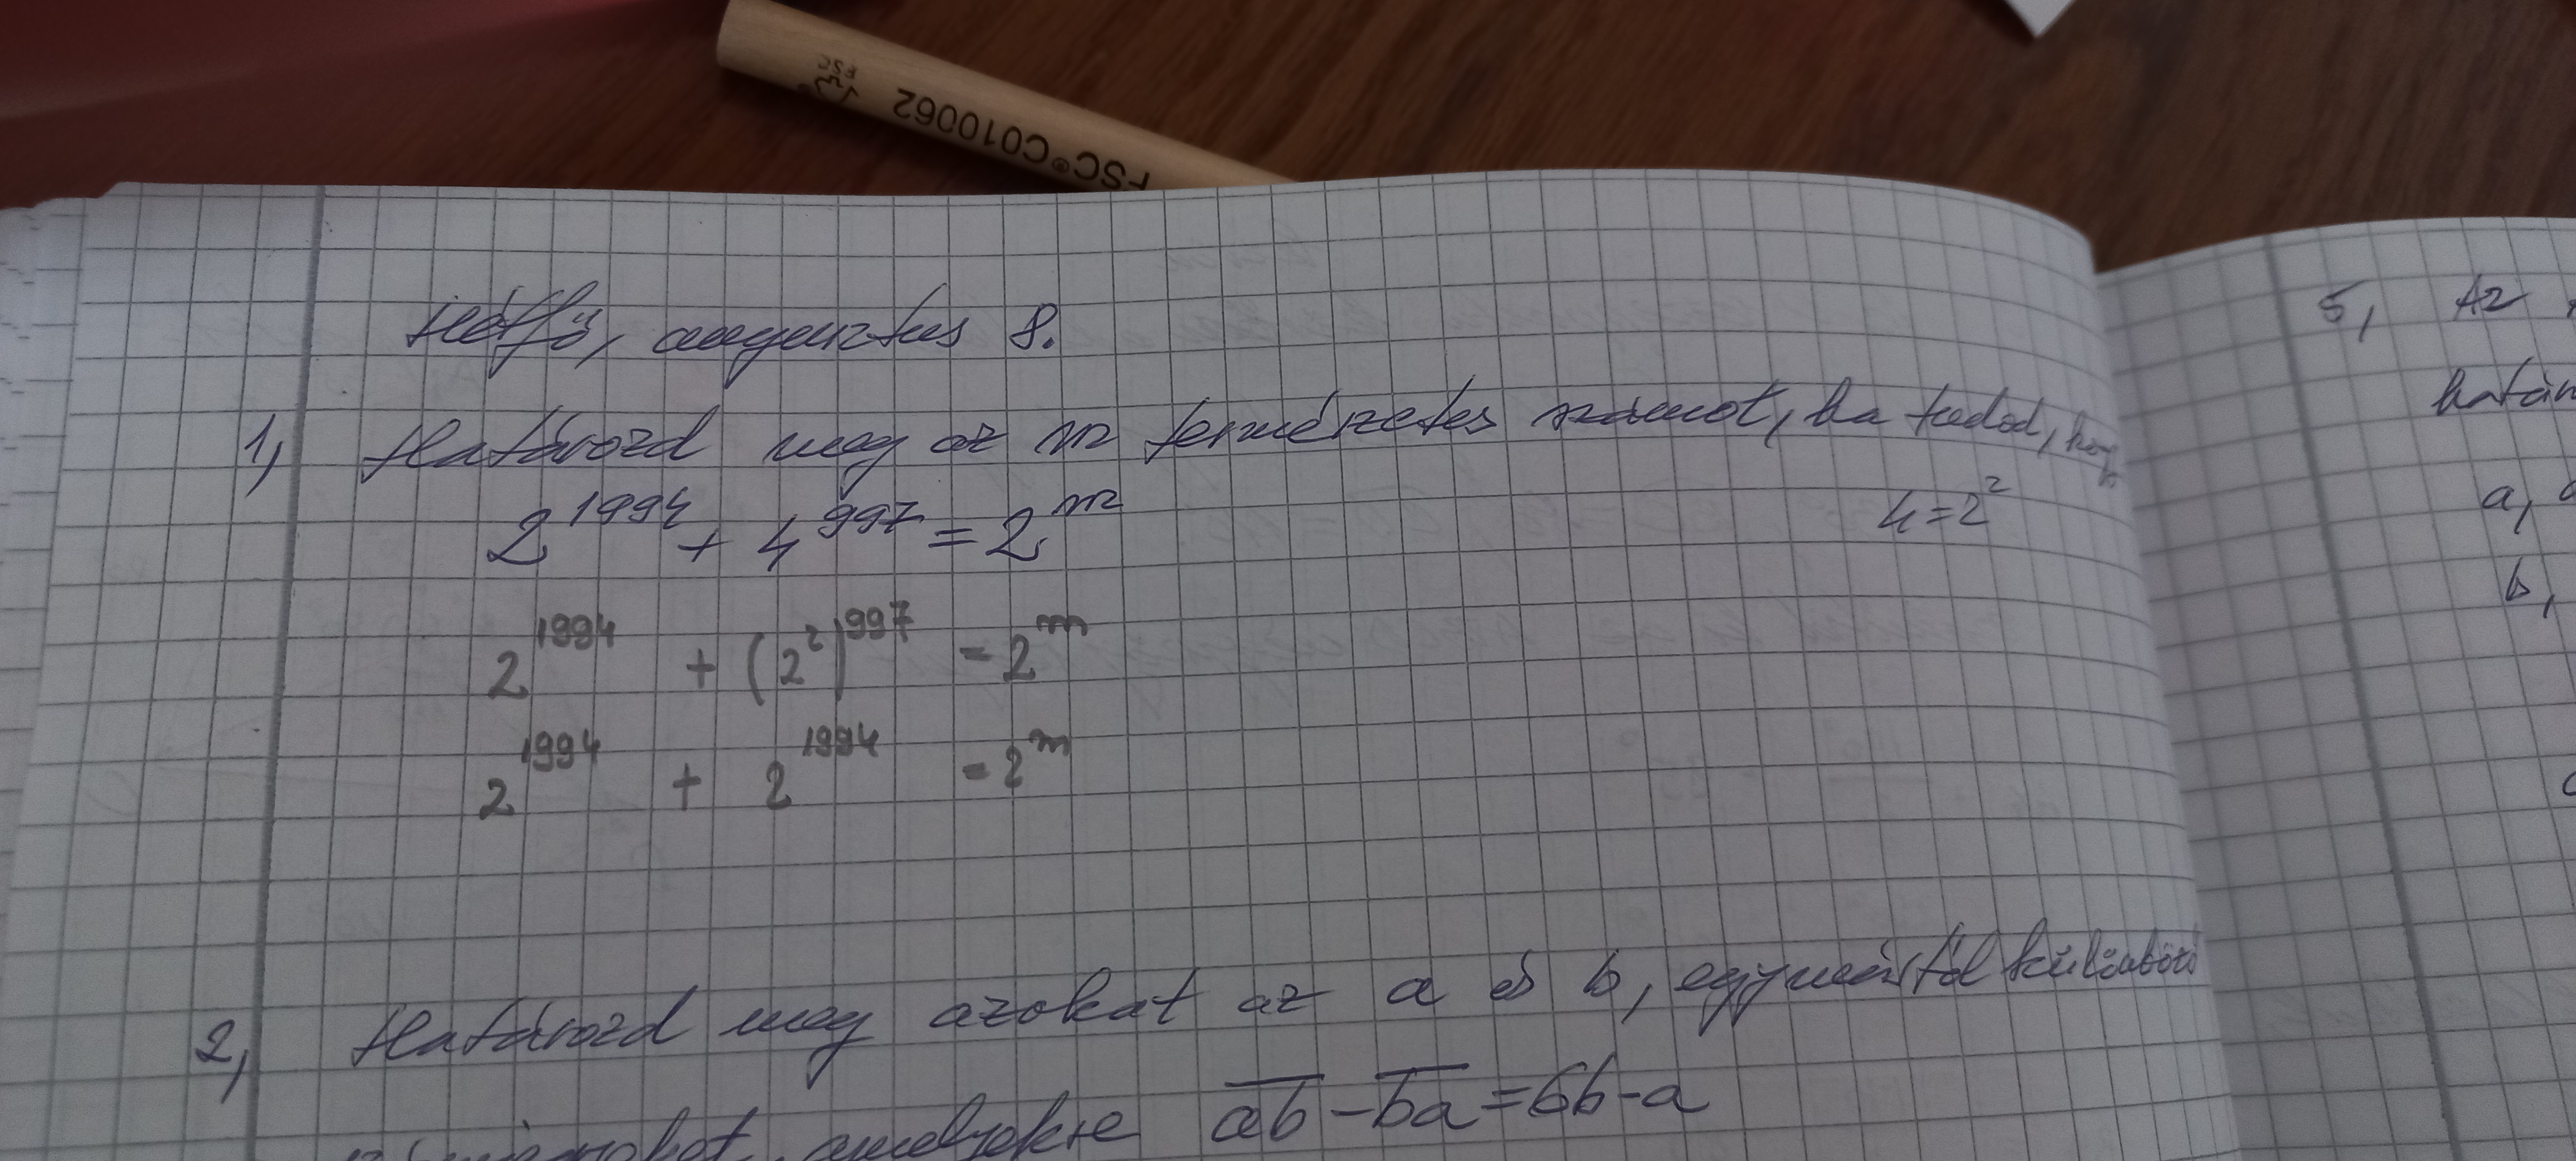 FSC
FSC® C010062
Hétfő, augusztus 8.
1, Határozd meg az m természetes számot, ha tudod, hogy
2^1994 + 4^997 = 2^m
4=2^2
2^1994 + (2^2)^997 = 2^m
2^1994 + 2^1994 = 2^m
2, Határozd meg azokat az a és b, egymástól különböző
amelyekre ab̅ - ba̅ = 6b-a
5, Az
határ
a,
b,